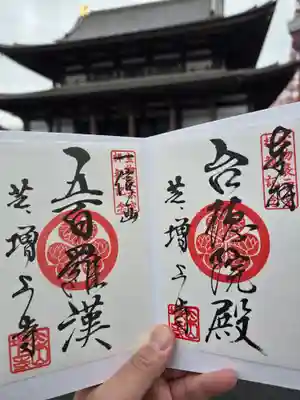 奉拝
台徳院殿
芝 増上寺
三縁山
五百羅漢
芝 増上寺